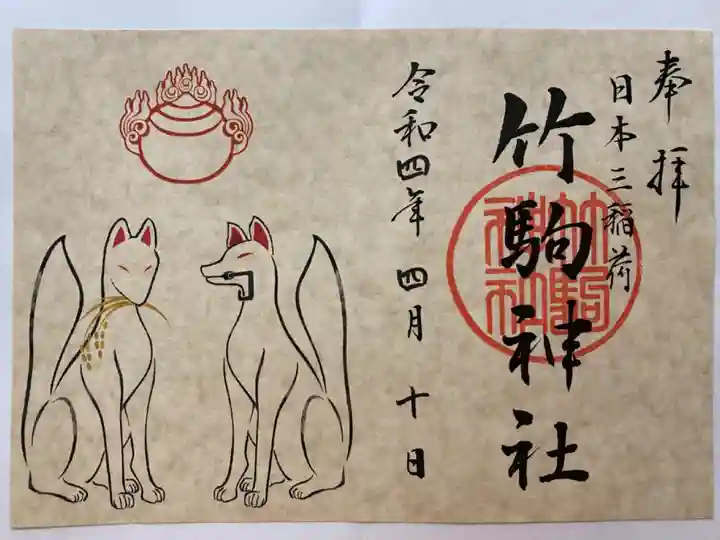 奉拝
日本三稲荷
竹駒神社
竹駒
神社
令和四年 四月 十日